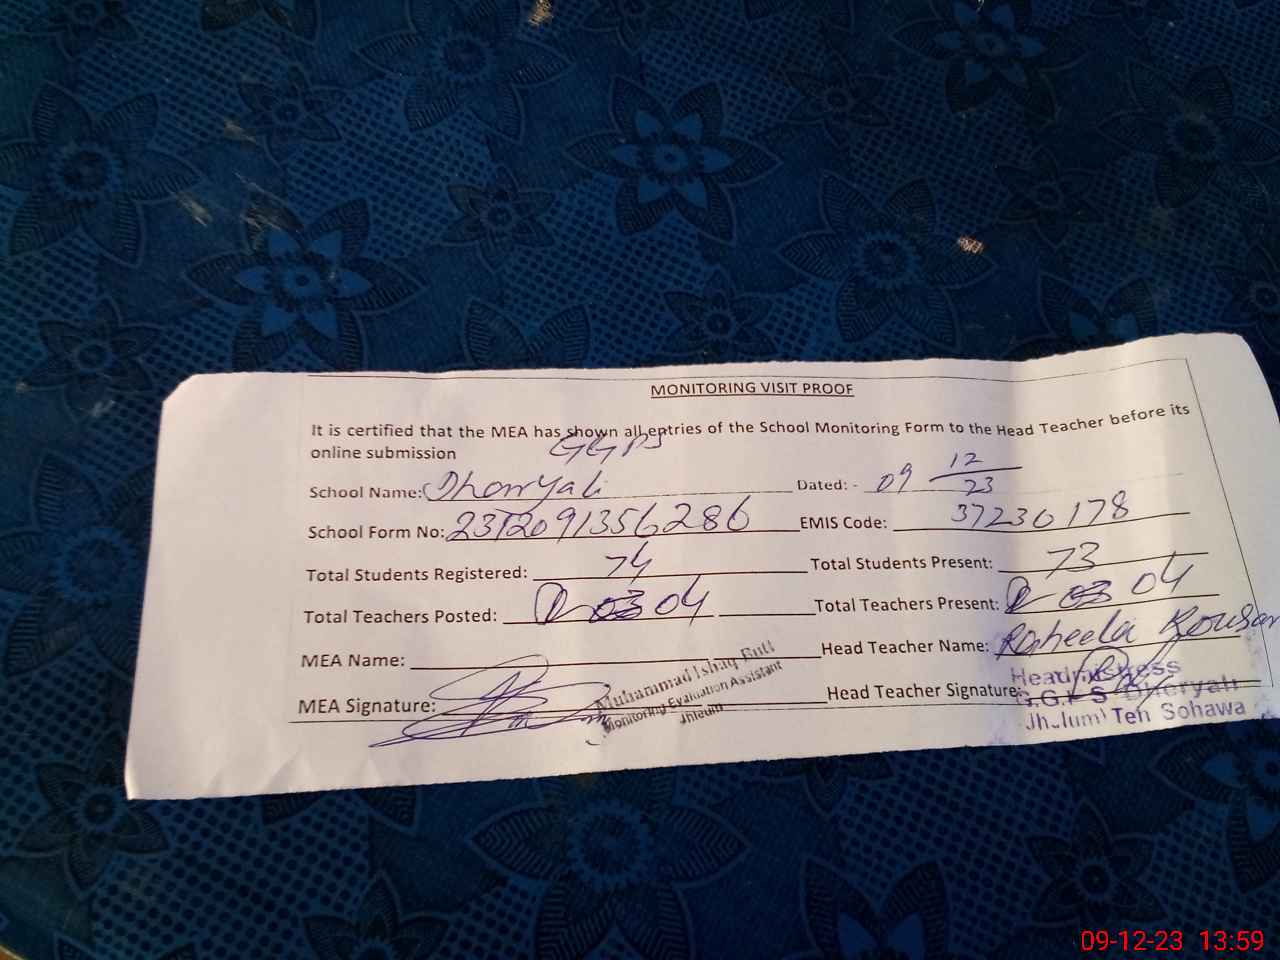 MONITORING VISIT PROOF
It is certified that the MEA has shown all entries of the School Monitoring Form to the Head Teacher before its
online submission
GGPS
School Name: Dheryali Dated: - 09 12/23
School Form No: 2312091356286 EMIS Code: 37230178
Total Students Registered: 74 Total Students Present: 73
Total Teachers Posted: 03 04 Total Teachers Present: 03 04
MEA Name: Head Teacher Name: Raheela Kousar
MEA Signature: Muhammad Ishaq Butt Head Teacher Signature: Headmistress
Monitoring Evaluation Assistant G.G.P.S Dheryali
Jhelum Jhelum) Teh Sohawa
09-12-23 13:59